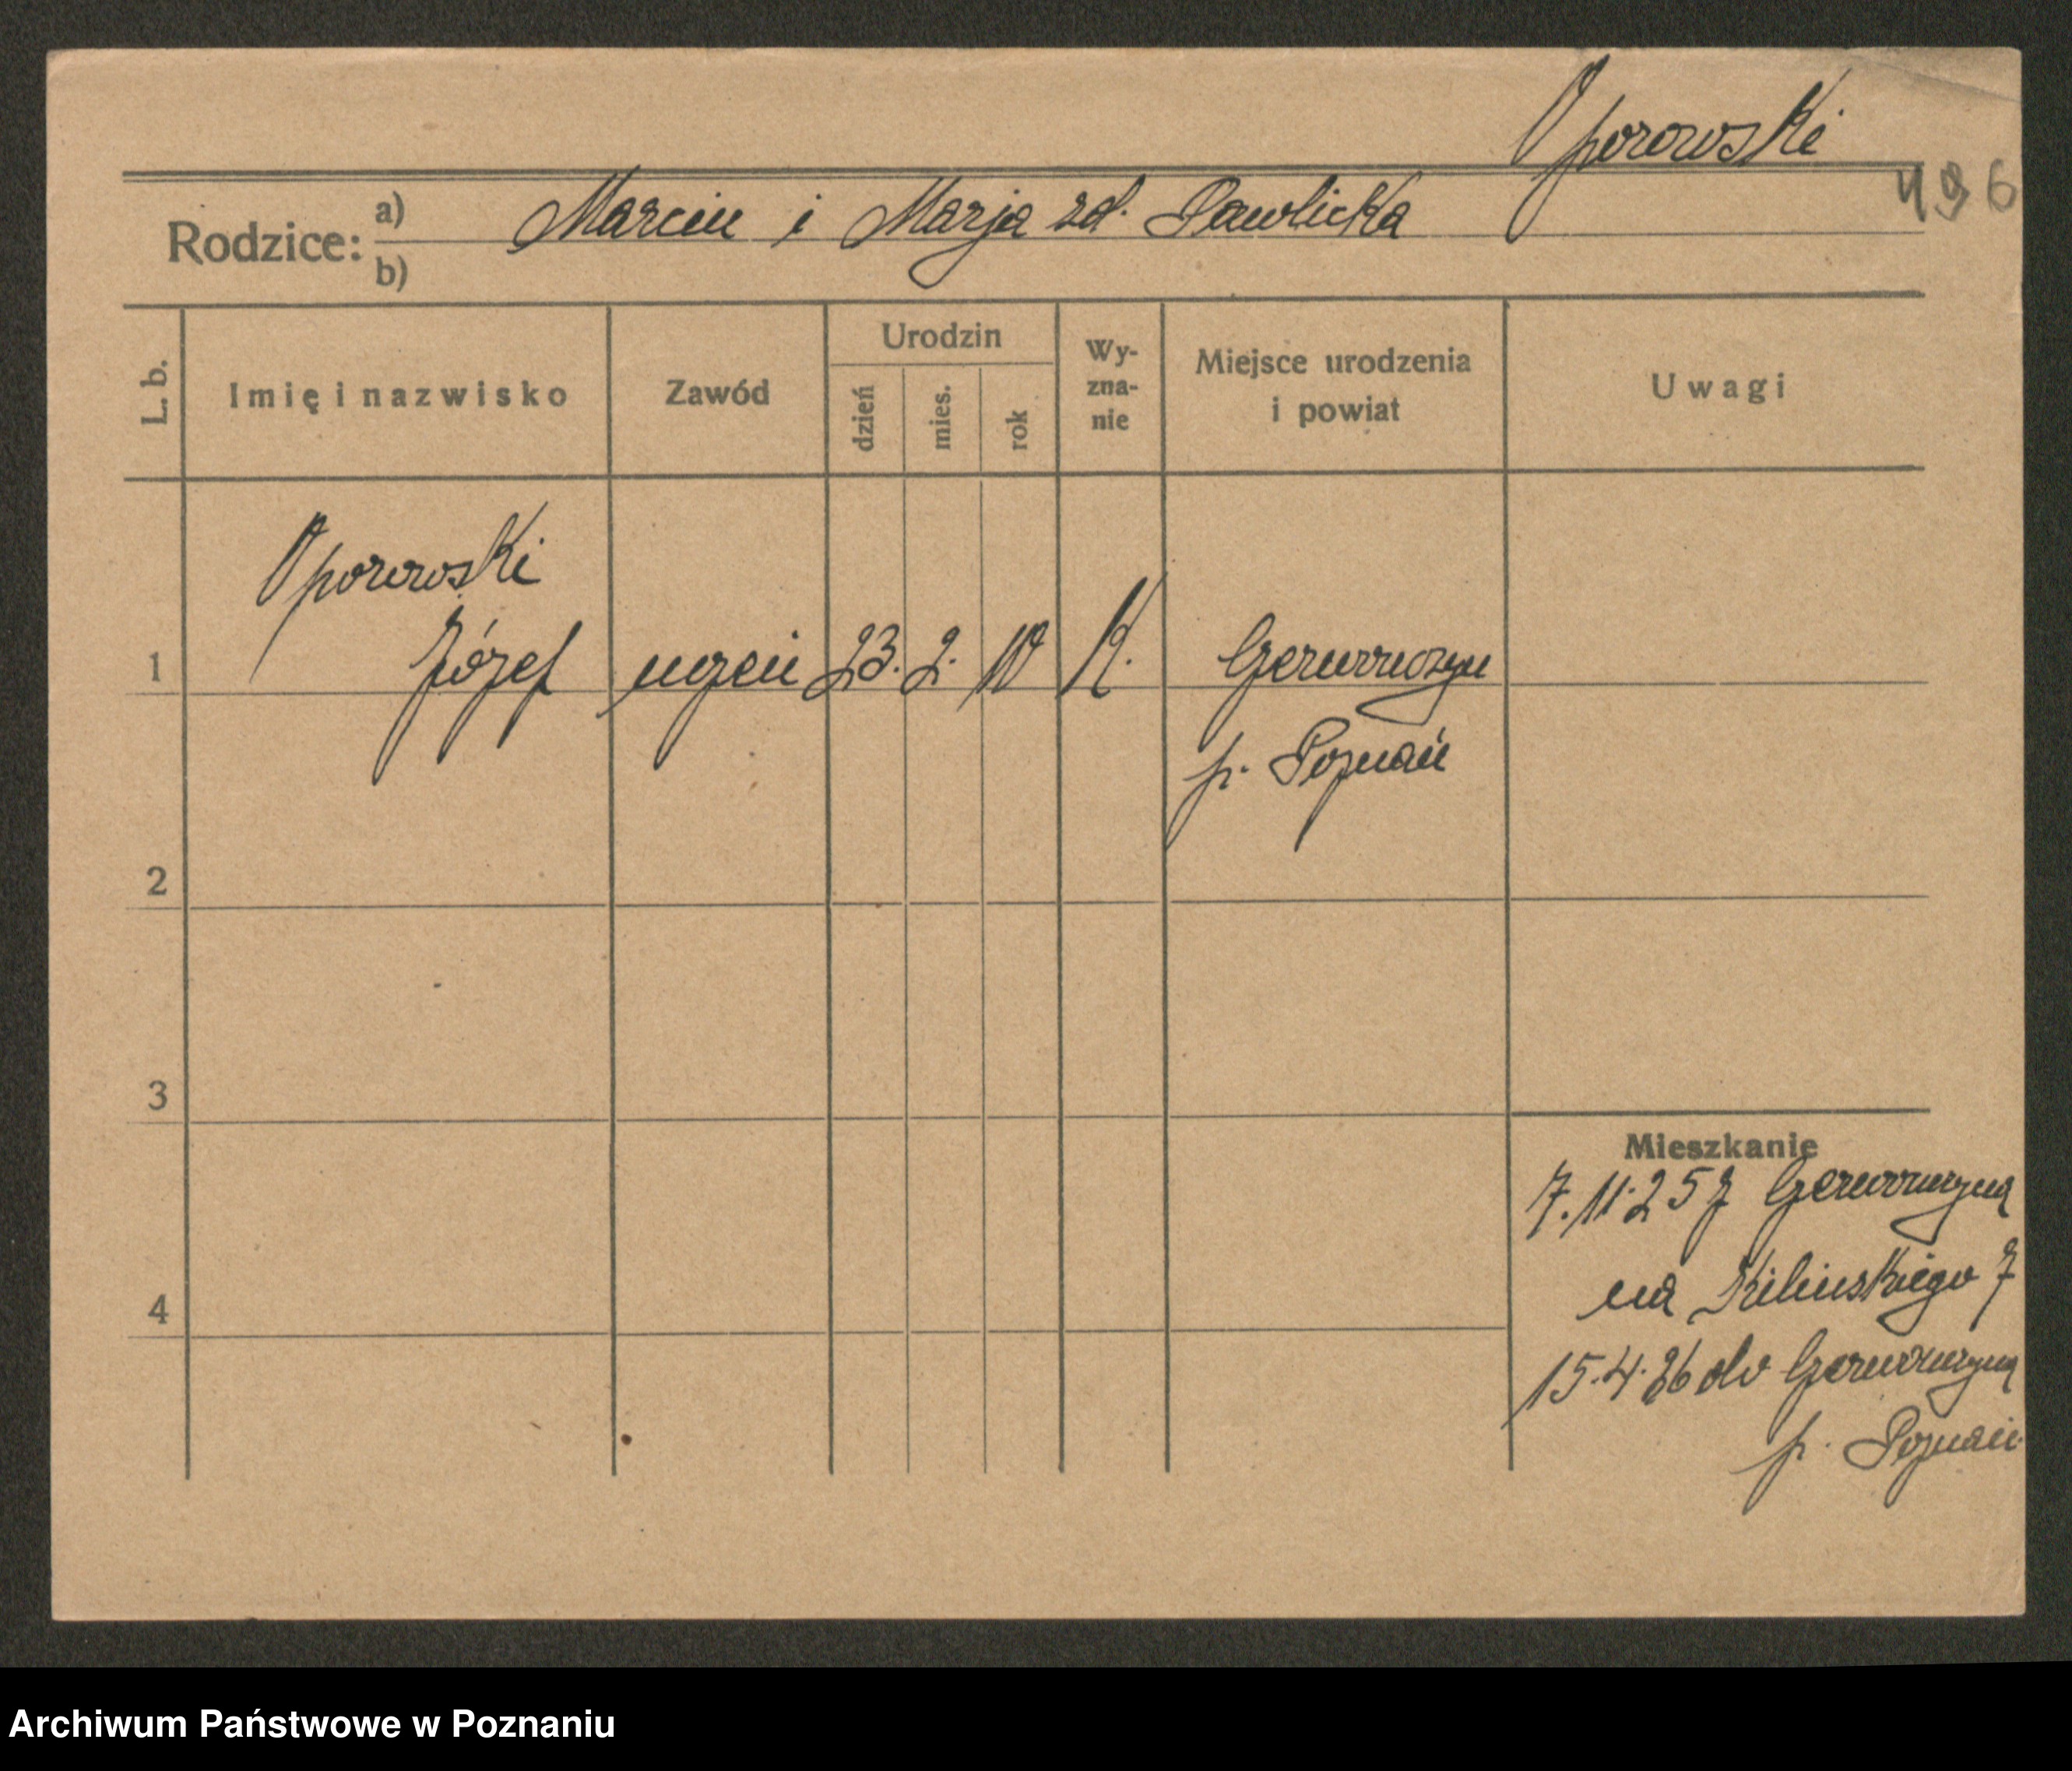 Oporowski
496
Rodzice: a) Marcin i Marja zd. Pawlicka
b)
L. b. Imię i nazwisko Zawód Urodzin dzień mies. rok Wy-zna-nie Miejsce urodzenia i powiat Uwagi
Oporowski
1 Józef uczeń 23. 2. 10 K.
p. Poznań
2
3
Mieszkanie
7.11.25 z
na Kilińskiego 7
4
15.4.26 do
p. Poznań
Archiwum Państwowe w Poznaniu